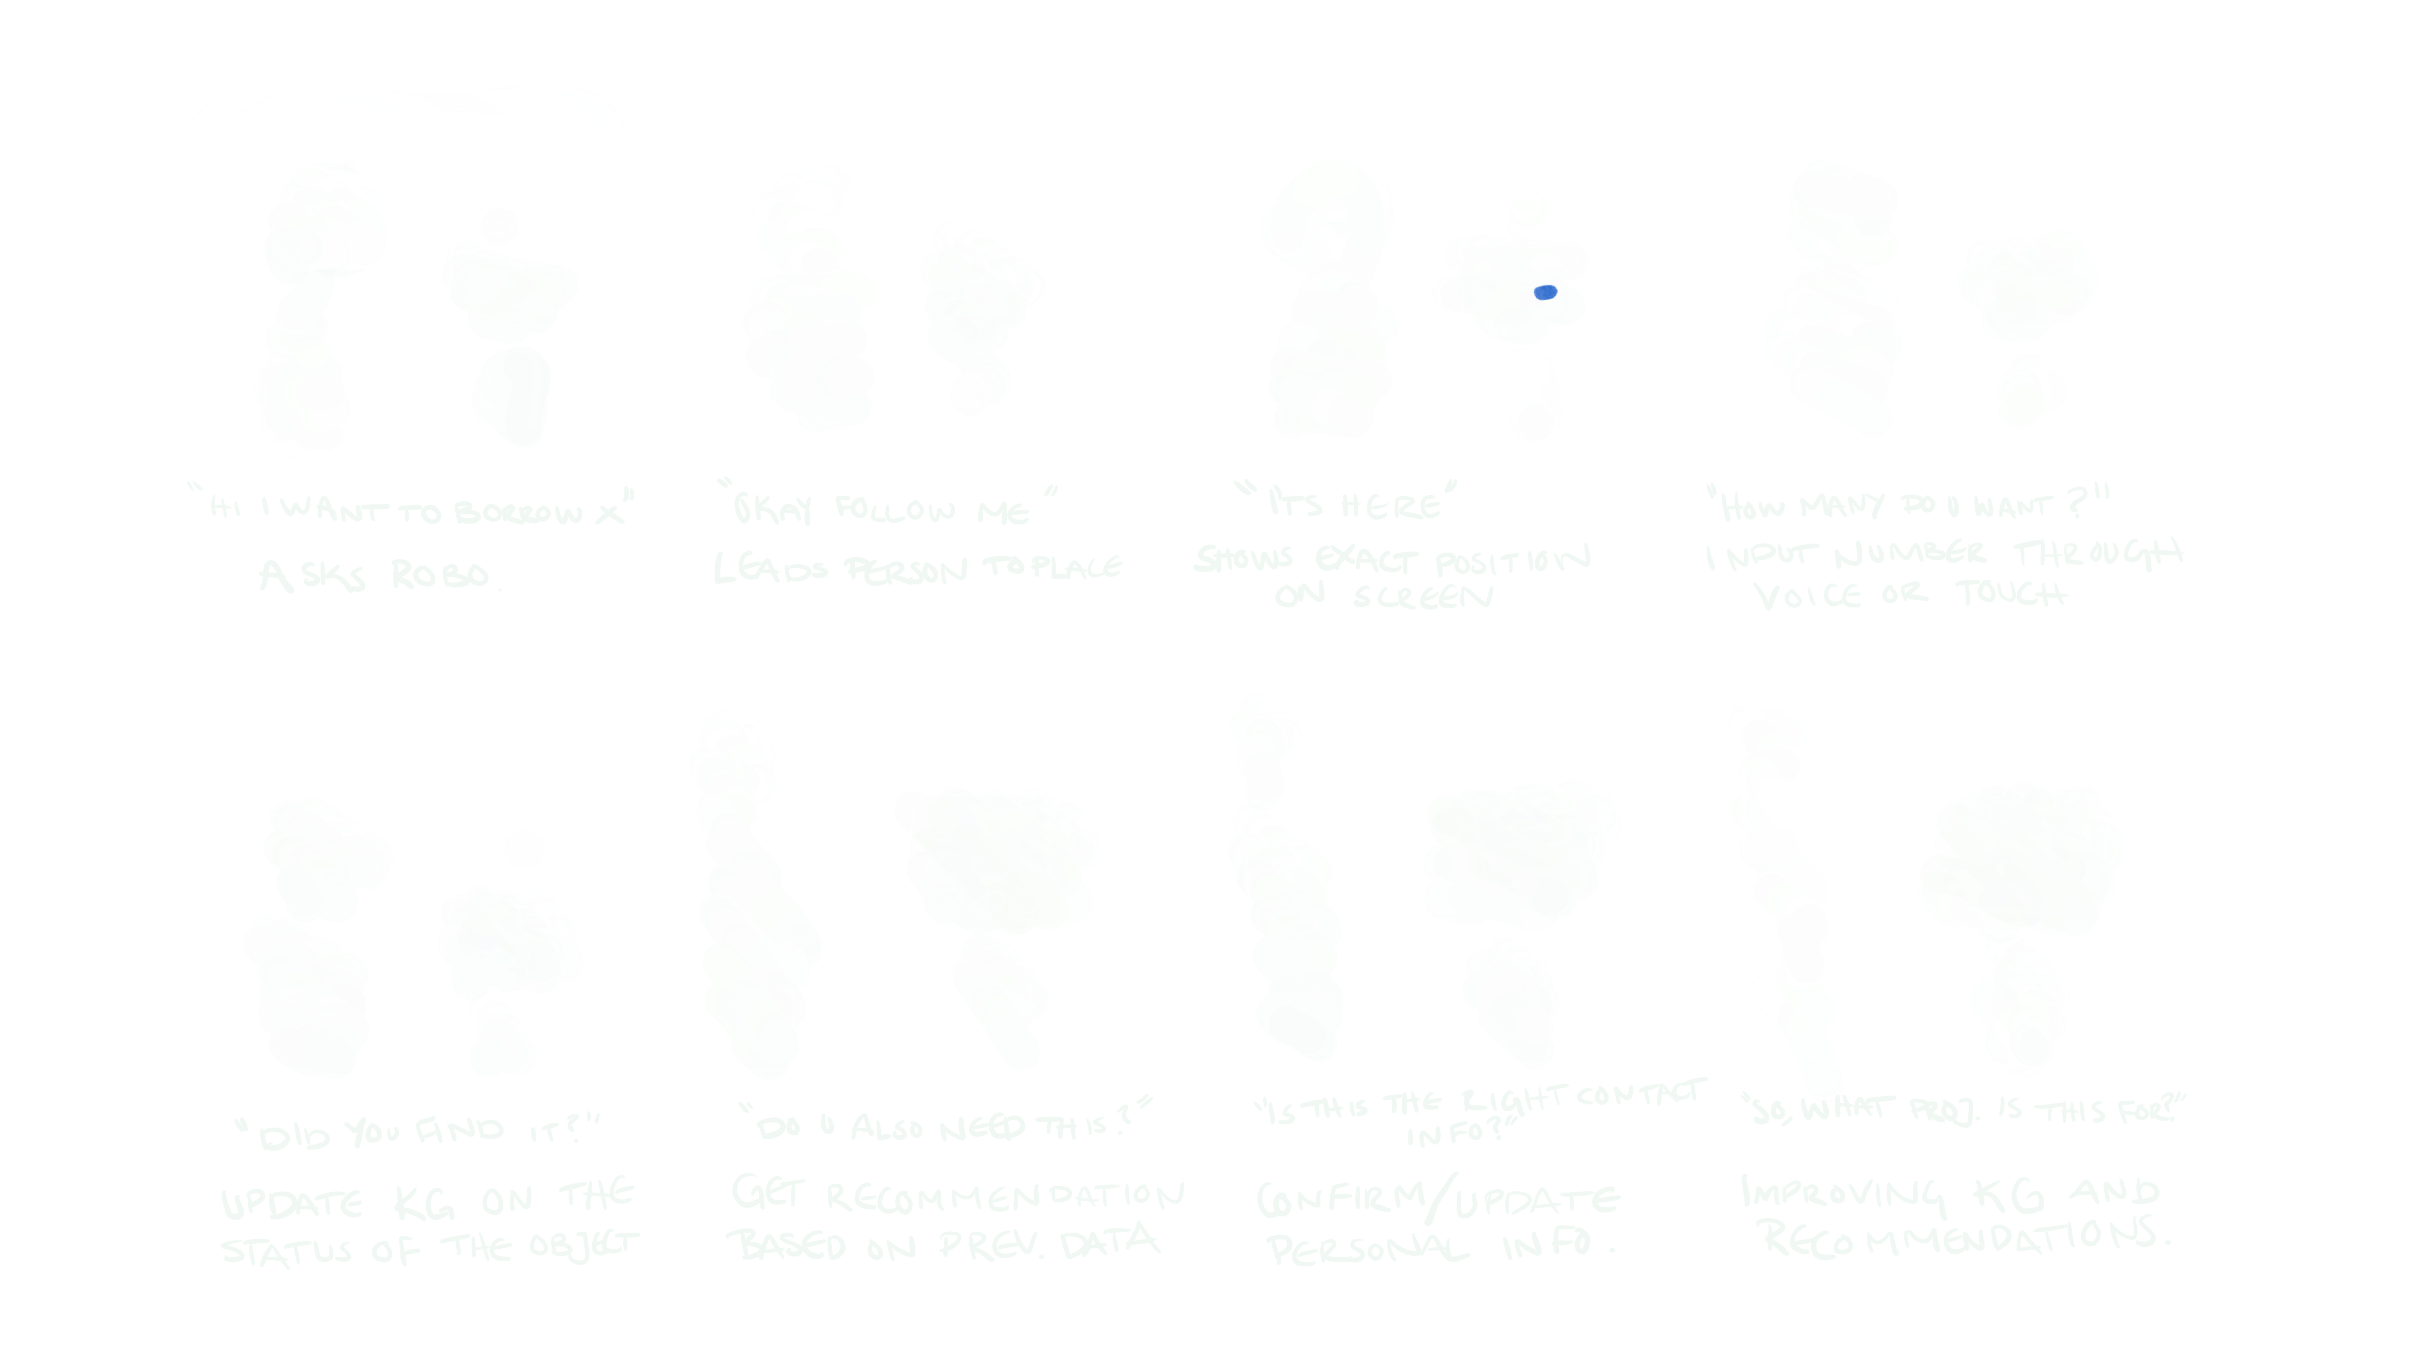 "Hi I WANT TO BORROW X"
ASKS ROBO.
"OKAY FOLLOW ME"
LEADS PERSON TO PLACE
"IT'S HERE"
SHOWS EXACT POSITION
ON SCREEN
"HOW MANY DO U WANT?"
INPUT NUMBER THROUGH
VOICE OR TOUCH
"DID YOU FIND IT?"
UPDATE KG ON THE
STATUS OF THE OBJECT
"DO U ALSO NEED THIS?"
GET RECOMMENDATION
BASED ON PREV. DATA
"IS THIS THE RIGHT CONTACT
INFO?"
CONFIRM/UPDATE
PERSONAL INFO.
"SO, WHAT PROJ. IS THIS FOR?"
IMPROVING KG AND
RECOMMENDATIONS.